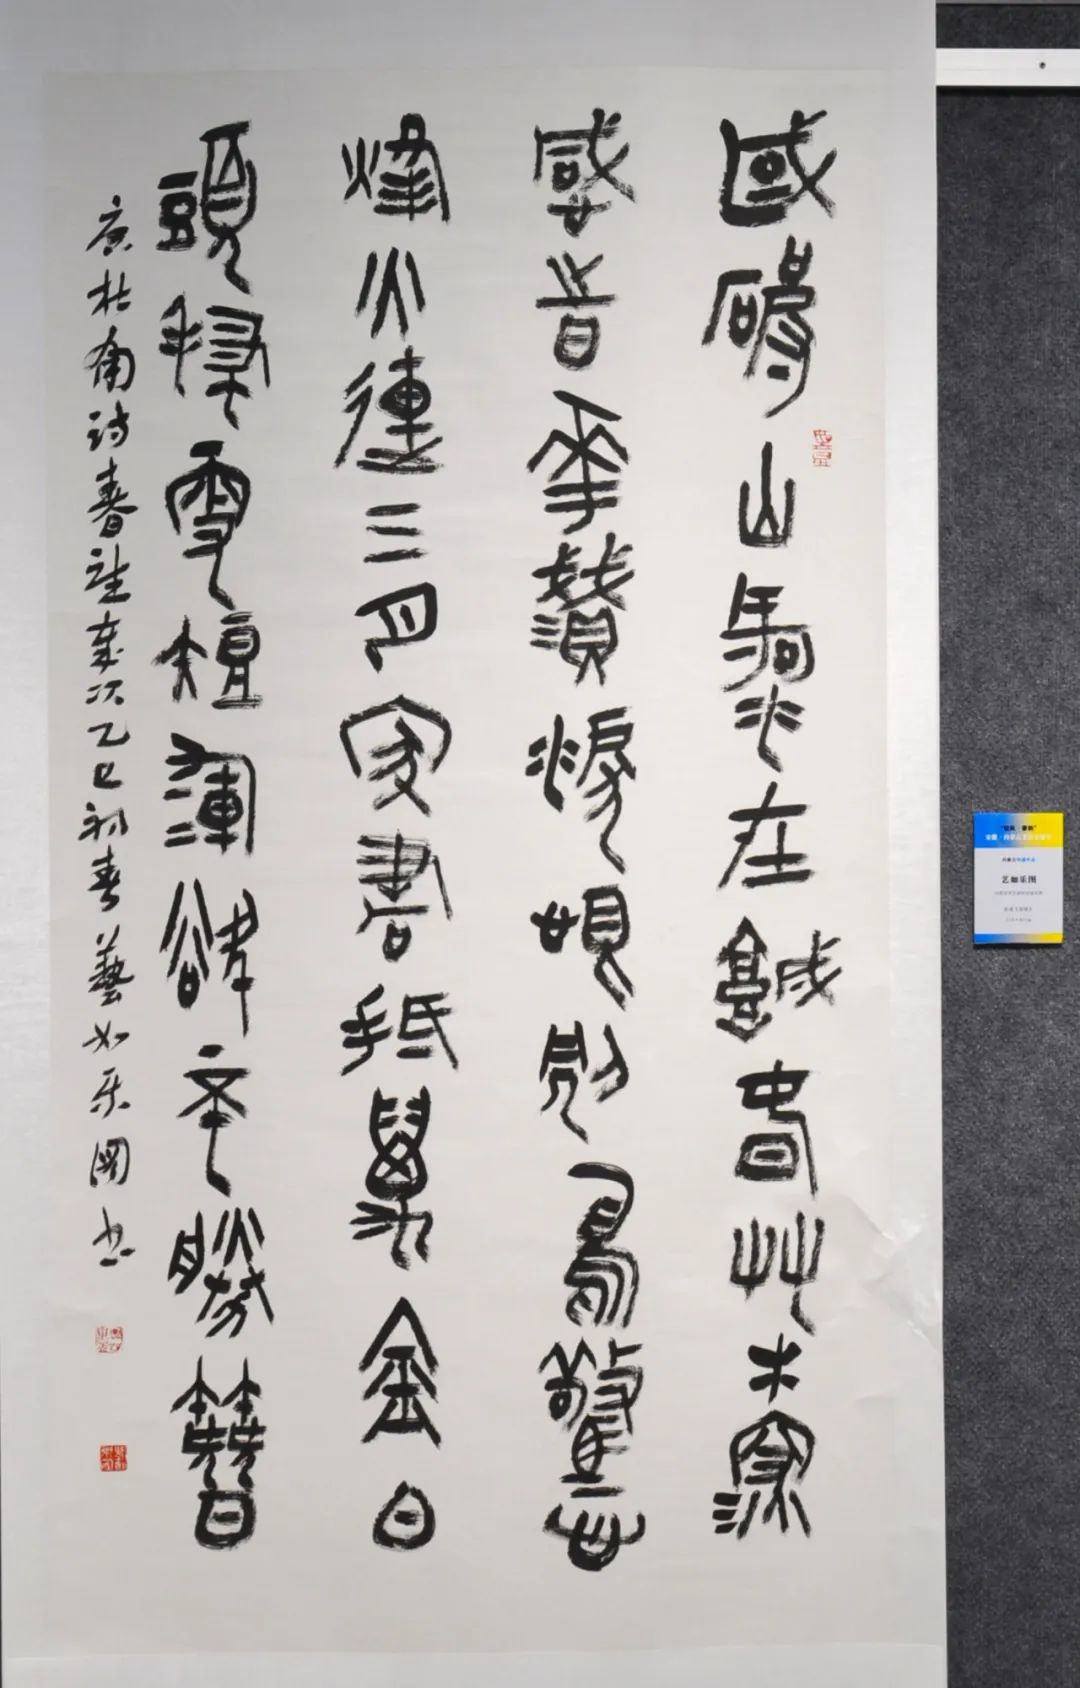 國破山河在城春草木深
感時花濺淚恨別鳥驚心
烽火連三月家書抵萬金白
頭搔更短渾欲不勝簪
唐杜甫詩春望歲次乙巳初春藝如乐圖书
艺如乐图